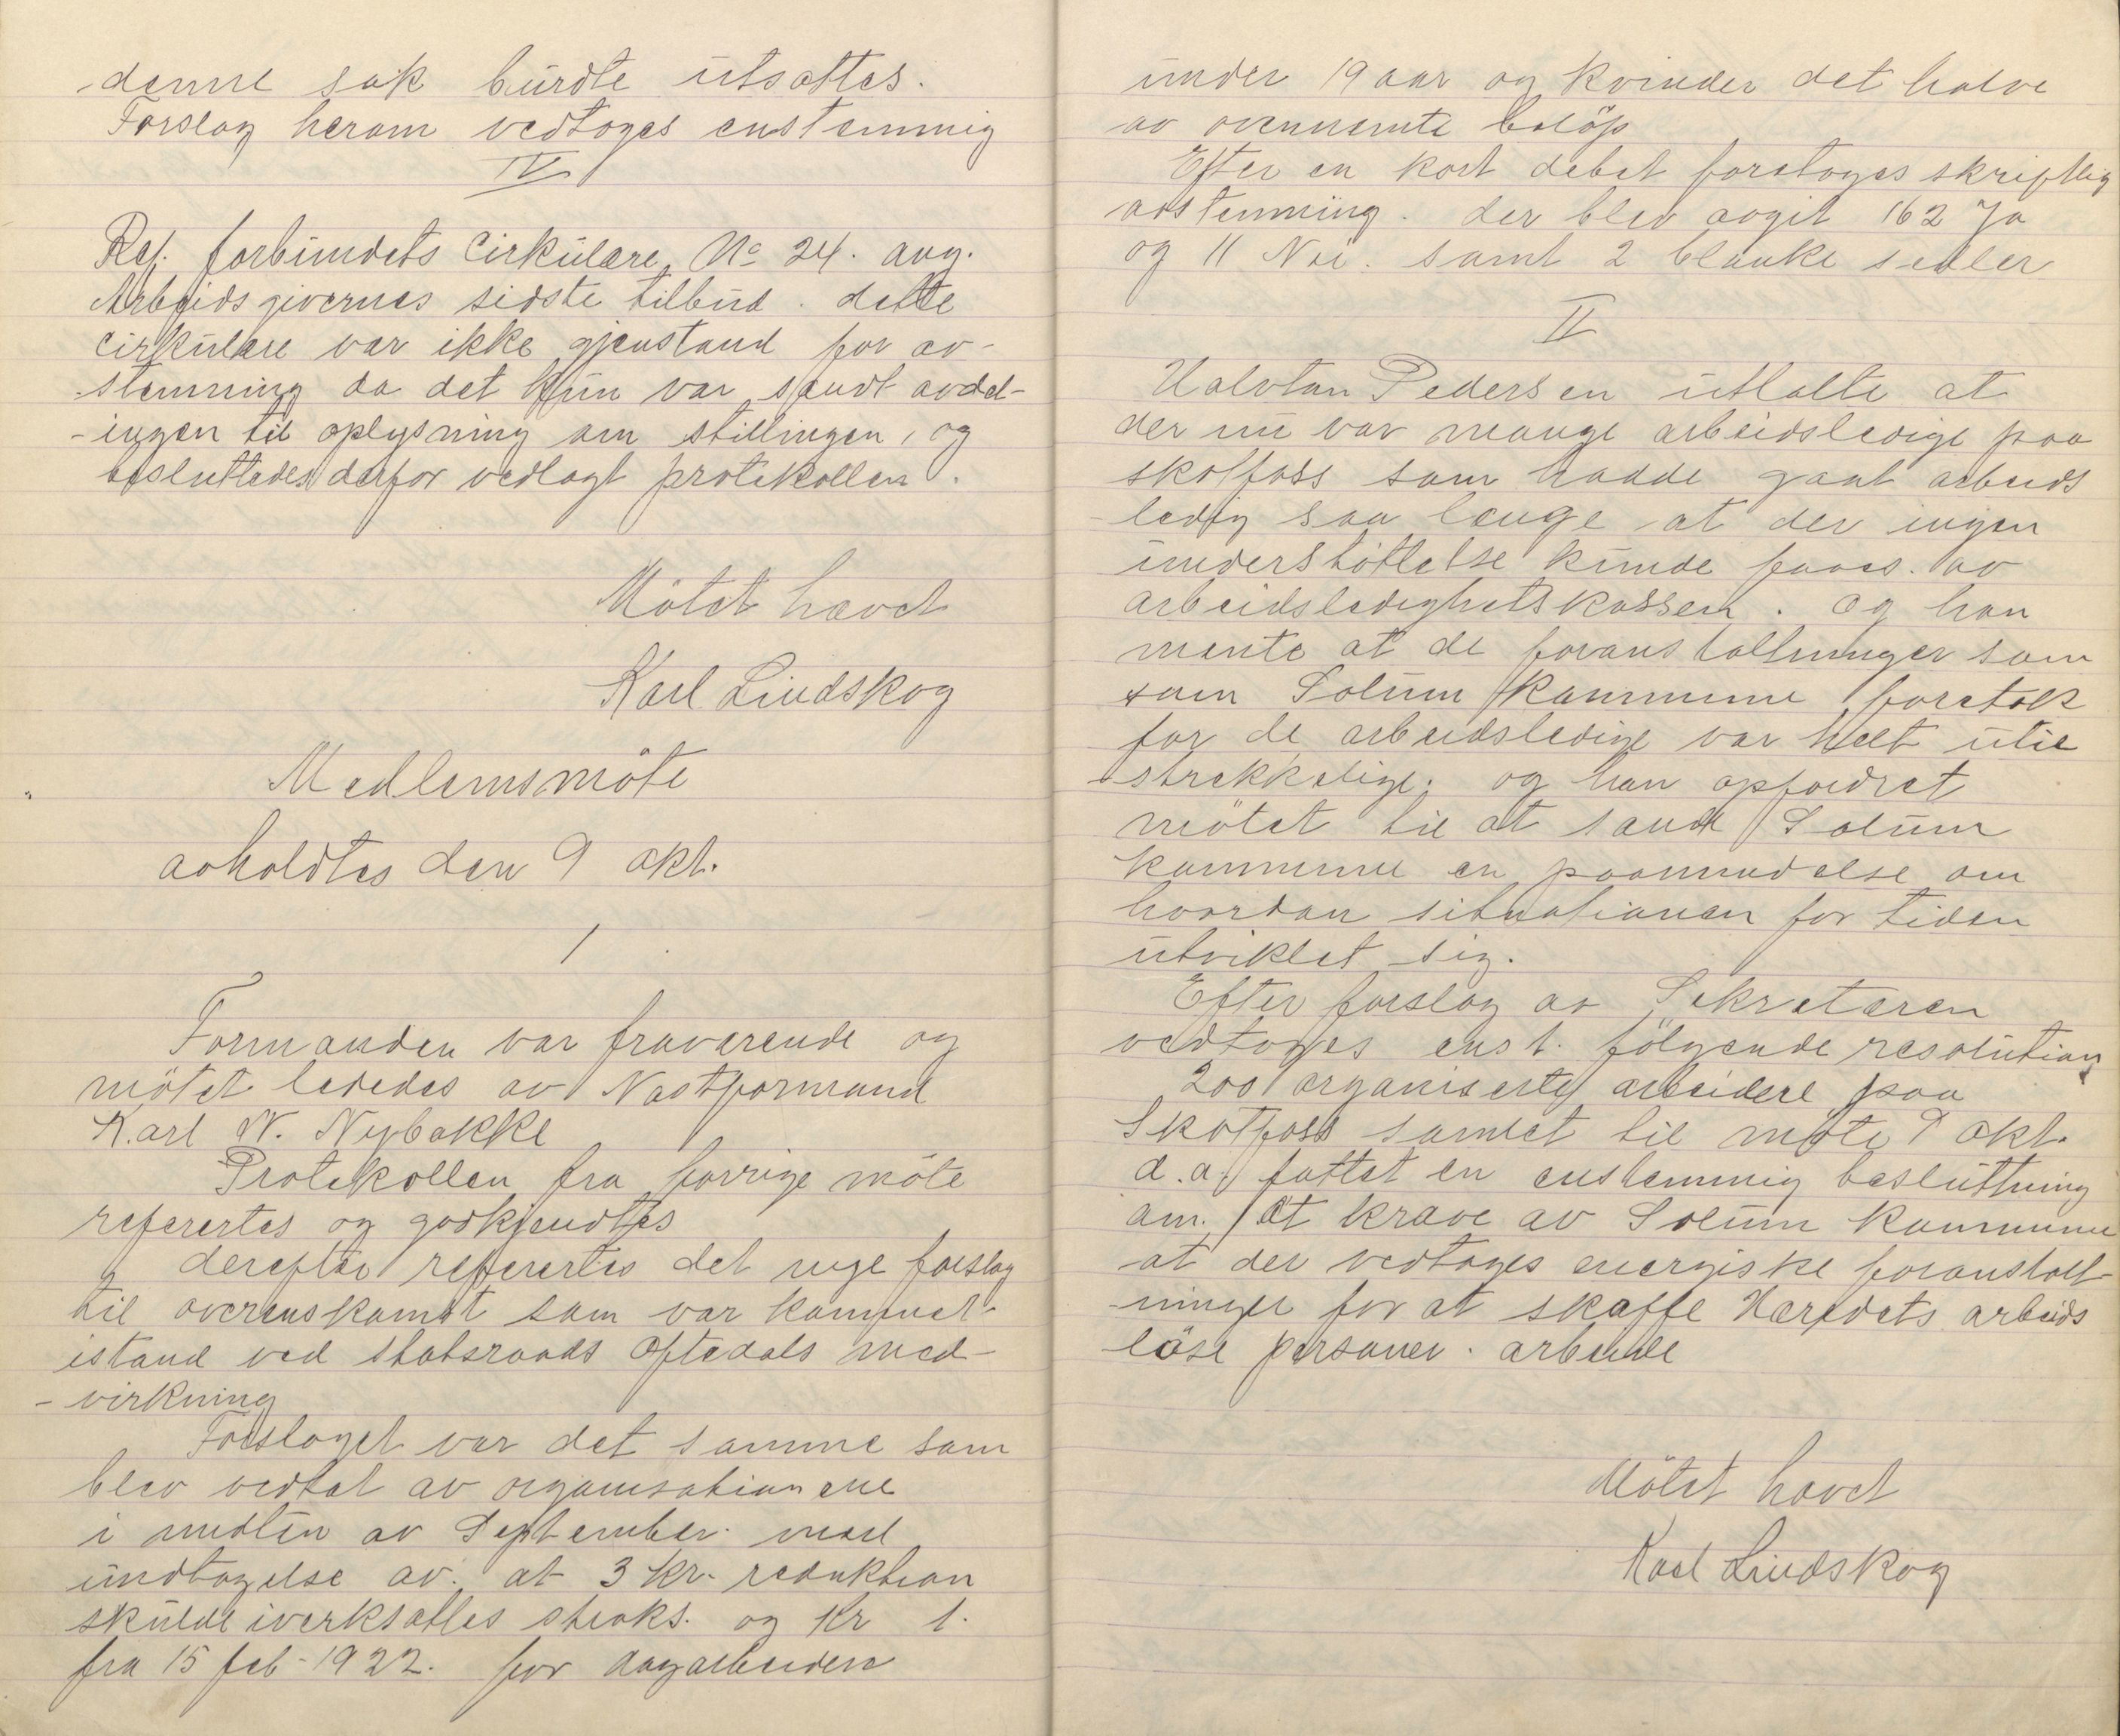 denne sak burdte utsættes.
Forslag herom vedtoges enstemmig
IV
Ref. forbundets Cirkulære No 24. ang.
Arbeidsgivernes sidste tilbud. dette
Cirkulære var ikke gjenstand for av-
stemning da det kun var sendt avdel-
-ingen til oplysning om stillingen, og
besluttedes derfor vedlagt protokollen.
Mötet hævet
Karl Lindskog
Medlemsmöte
avholdtes den 9 okt.
1
Formanden var fraværende og
mötet lededes av Næstformand
Karl N. Nybakke
Protokollen fra forrige möte
referertes og godkjendtes
derefter refererters det nye forslag
til overenskomst som var kommet
istand ved statsraads Oftedals med-
-virkning
Forslaget var det samme som
blev vedtat av organisationene
i midten av September. med
undtagelse av. at 3 kr. reduktion
skulde iverksættes straks. og Kr 1.
fra 15 feb-1922. for dagarbeidere
under 19 aar og kvinder det halve
av ovennemte belöp
Efter en kort debat foretoges skriftlig
avstemning. der blev avgit 162 Ja
og 11 Nei. samt 2 blanke sedler
II
Halvtan Pedersen uttalte at
der nu var mange arbeidsledige paa
skotfoss som hadde gaat arbeids
-ledig saa længe at der ingen
understöttelse kunde faaes. av
arbeidsledighetskassen. og han
mente at de foranstaltninger som
som Solum kommune foretok
for de arbeidsledige var helt util
-strekkelige. og han opfordret
mötet til at sende Solum
kommune en paamindelse om
hvordan situationen for tiden
utviklet sig.
Efter forslag av Sekretæren
vedtoges enst. fölgende resolution
200 organiserte arbeidere paa
Skotfoss samlet til möte 9 okt.
d.a. fattet en enstemmig besluttning
om. at kræve av Solum kommune
at der vedtages energiske foranstalt-
-ninger for at skaffe Herredets arbeids
löse personer. arbeide
Mötet hævet
Karl Lindskog